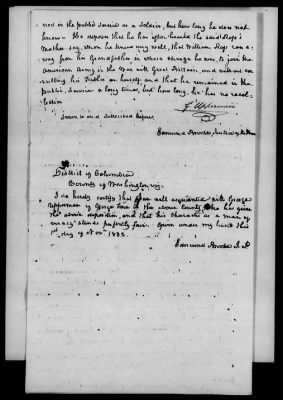 ned in the public service as a Soldier, but how long he does not
know. He deposes that he has often heard the said Rope's
Mother say, whom he knew very well, that William Rope ran a-
way from his Grandfather in whose charge he was, to join the
American Army in the War with Great Britain, and without con-
sulting his Father or herself; and that he remained in the
public service a long time, but how long, he has no recol-
lection.
G. Upperman
Sworn to and subscribed before
Edmund Brooke, Justice of the Peace
District of Columbia
County of Washington, viz.
I do hereby certify that I am well acquainted with George
Upperman of George Town in the above County, who has given
the above deposition, and that his character as a man of
veracity stands perfectly fair. Given under my hand this
1st day of Nov. 1832.
Edmund Brooke J. P.